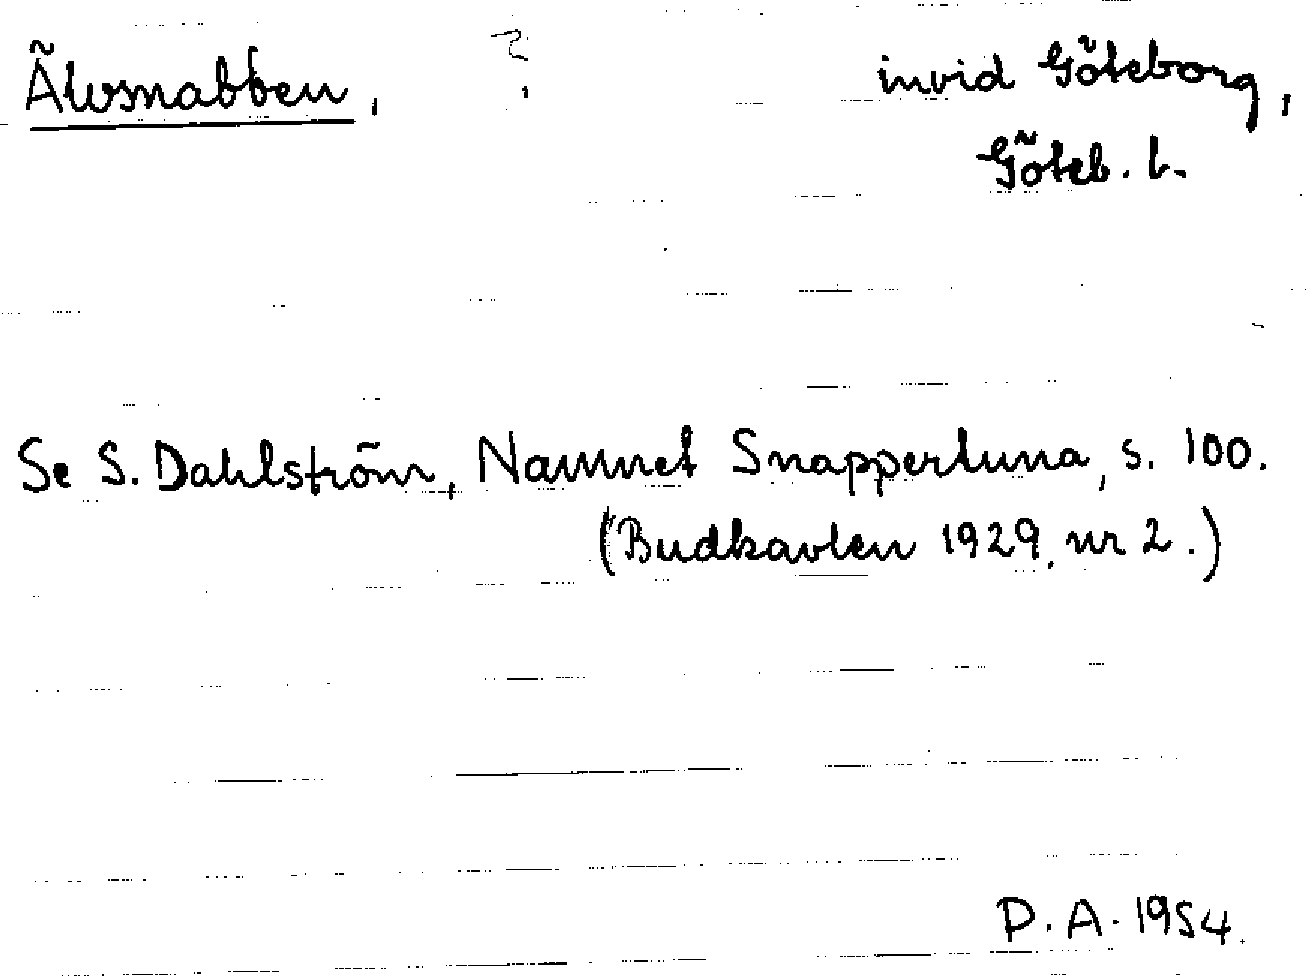 Älvsnabben, ? invid Göteborg,
Göteb. l.
Se S. Dahlström, Namnet Snappertuna, s. 100.
(Budkavlen 1929, nr 2.)
P. A. 1954.